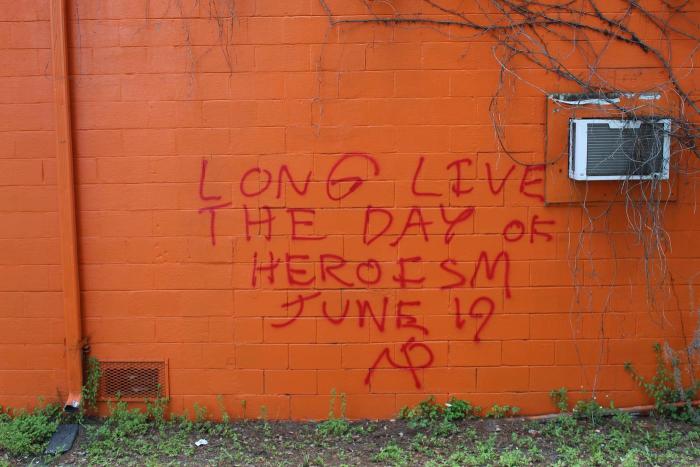 LONG LIVE
THE DAY OF
HEROISM
JUNE 19
AP